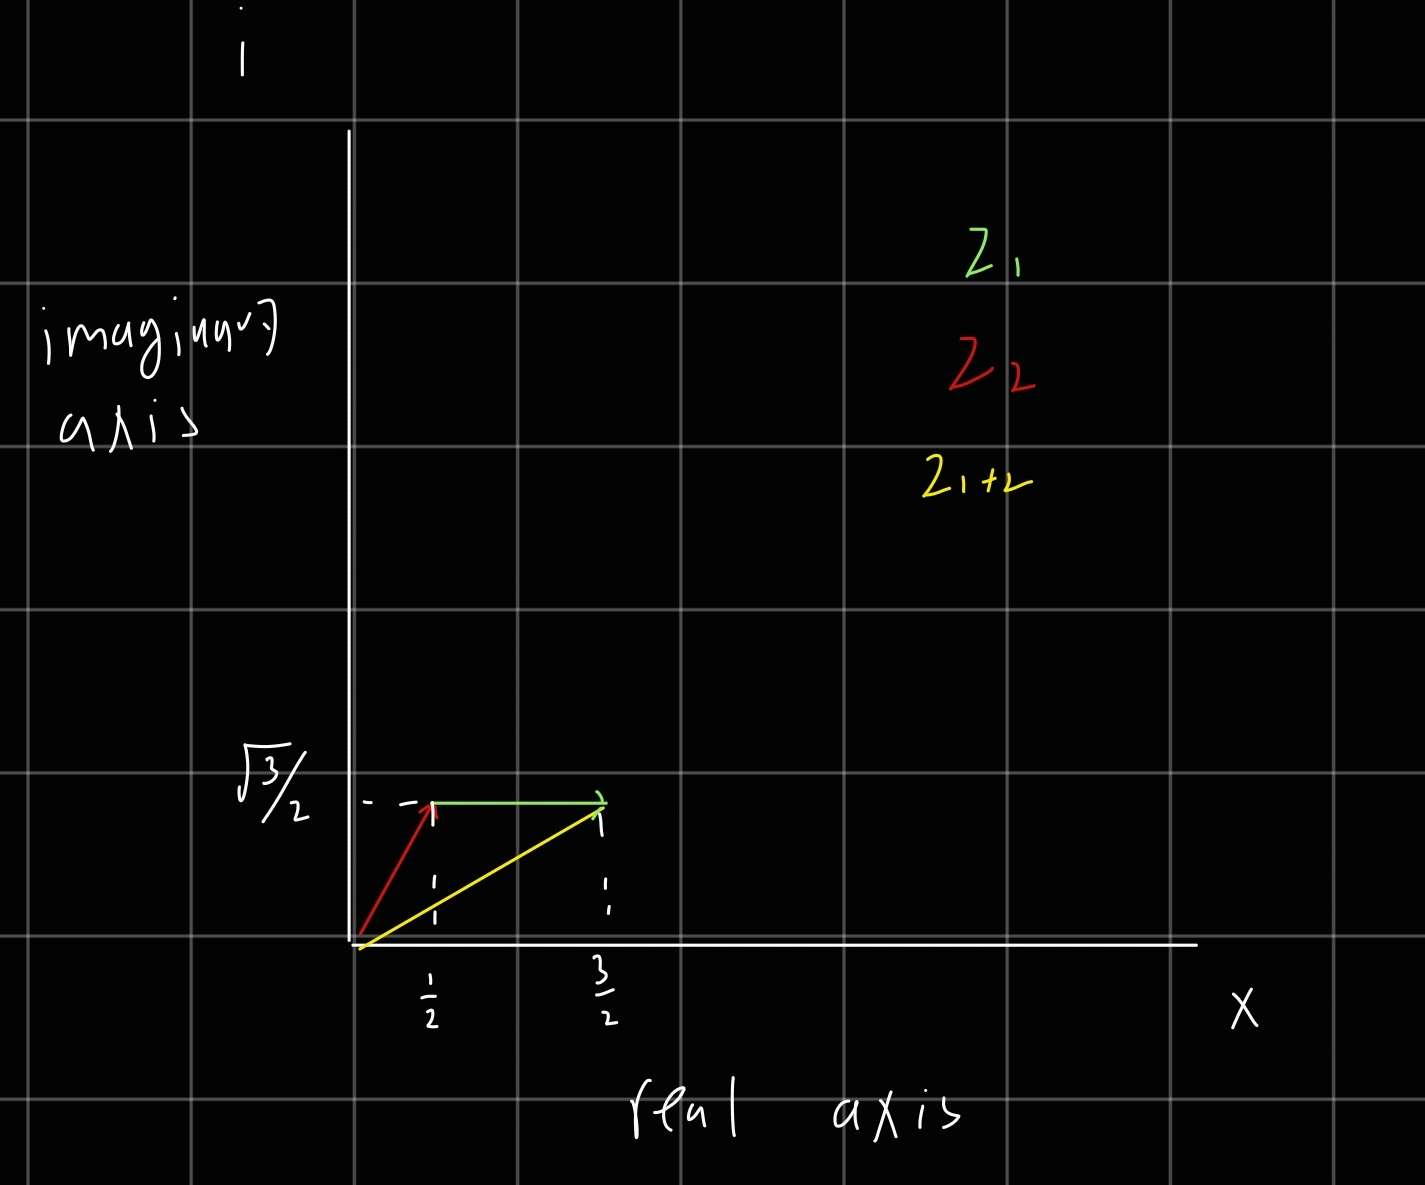 i
imaginary
axis
Z1
Z2
Z1+2
√3/2
1/2
3/2
X
real axis